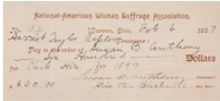 National-American Woman Suffrage Association.
Warren, Ohio, Feb 6 1897
Harriet Taylor Upton
Treasurer:
Pay to order of Susan B. Anthony
Six Hundred Dollars
for 1897
Susan B. Anthony
$600.00 Alice Stone Blackwell